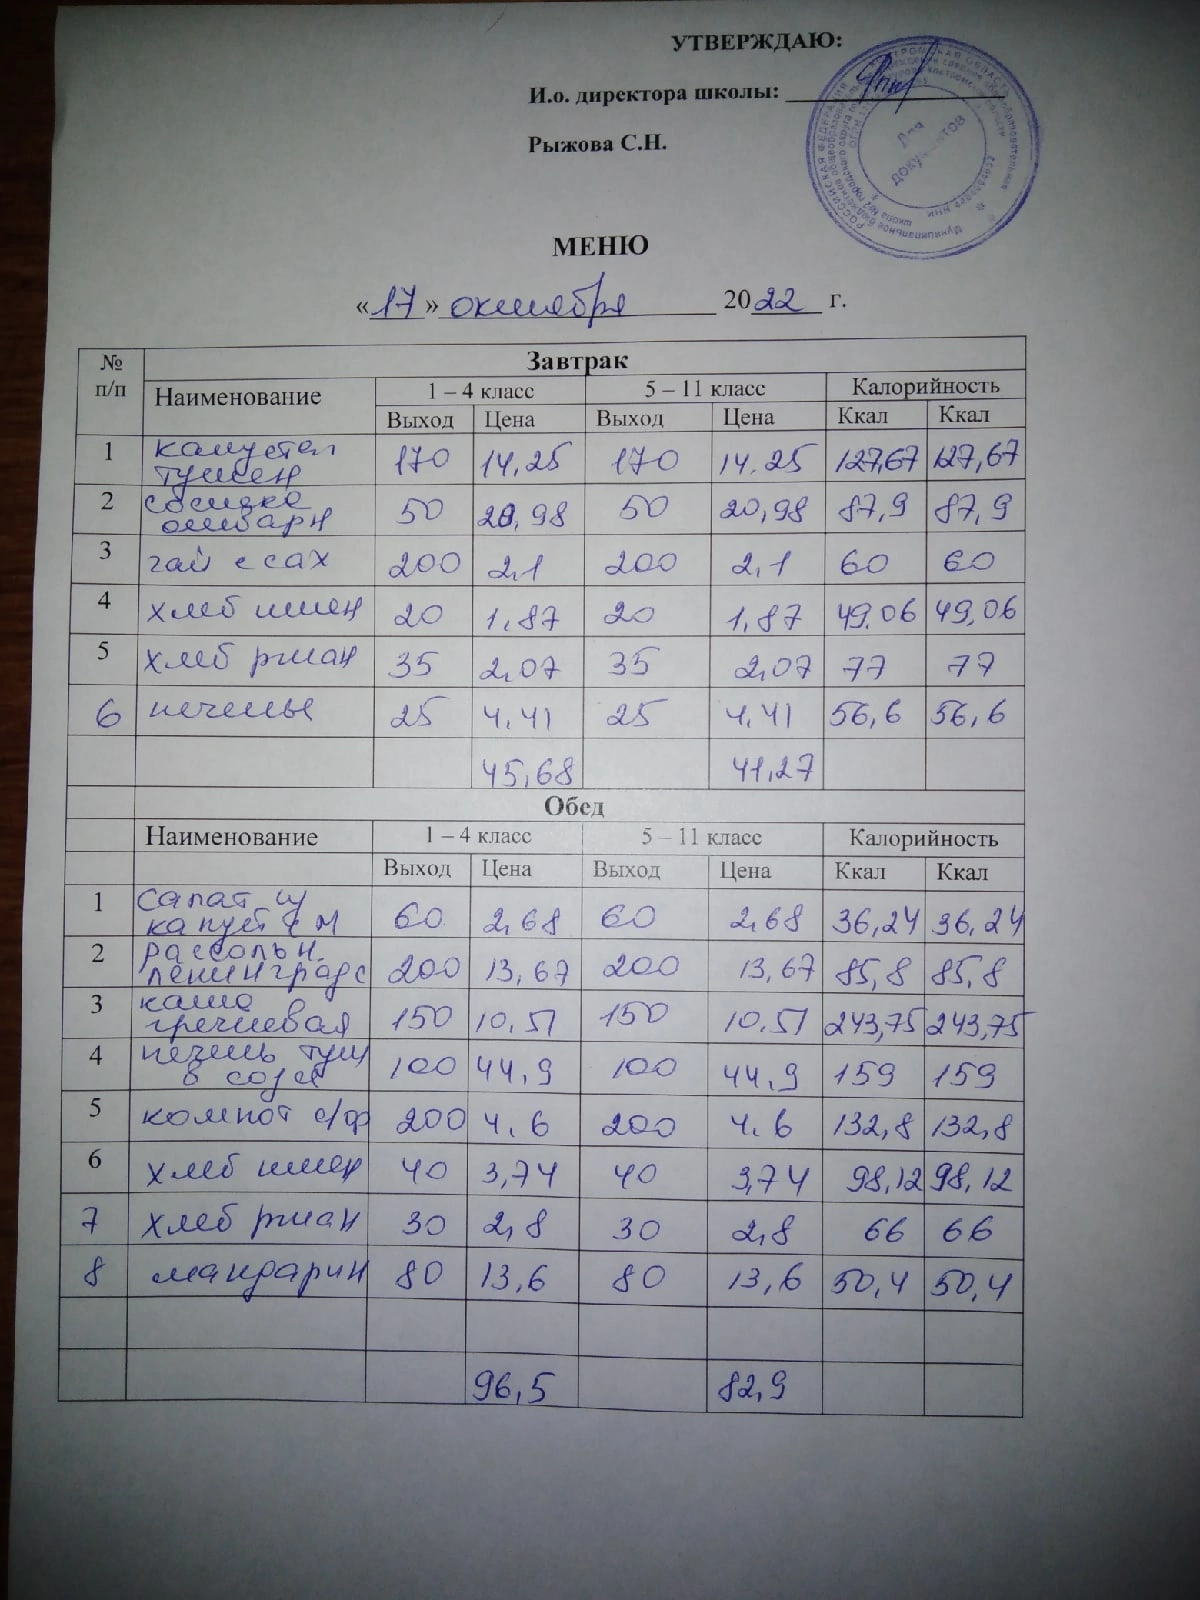 УТВЕРЖДАЮ:
И.о. директора школы:
Рыжова С.Н.
Для
документов
МЕНЮ
«17» октября 2022 г.
№ п/п Завтрак
Наименование 1 – 4 класс 5 – 11 класс Калорийность
Выход Цена Выход Цена Ккал Ккал
1 капуста тушен 170 14,25 170 14,25 127,67 127,67
2 сосиска отварн 50 20,98 50 20,98 87,9 87,9
3 чай с сах 200 2,1 200 2,1 60 60
4 хлеб пшен 20 1,87 20 1,87 49,06 49,06
5 хлеб ржан 35 2,07 35 2,07 77 77
6 печенье 25 4,41 25 4,41 56,6 56,6
45,68 41,27
Обед
Наименование 1 – 4 класс 5 – 11 класс Калорийность
Выход Цена Выход Цена Ккал Ккал
1 салат из капуст с м 60 2,68 60 2,68 36,24 36,24
2 рассольн. ленинградс 200 13,67 200 13,67 85,8 85,8
3 каша гречневая 150 10,51 150 10,51 243,75 243,75
4 печень туш в соусе 100 44,9 100 44,9 159 159
5 компот с/ф 200 4,6 200 4,6 132,8 132,8
6 хлеб пшен 40 3,74 40 3,74 98,12 98,12
7 хлеб ржан 30 2,8 30 2,8 66 66
8 мандарин 80 13,6 80 13,6 50,4 50,4
96,5 82,9